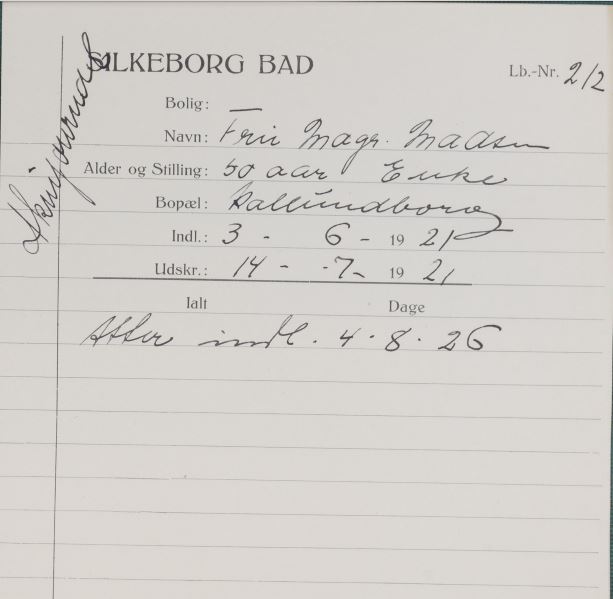 SILKEBORG BAD
Lb.-Nr. 212
Bolig: —
Navn: Fru Magr. Madsen
Alder og Stilling: 50 aar Enke
Bopæl: Kallundborg
Indl.: 3 - 6 - 1921
Udskr.: 14 - -7- 1921
Ialt Dage
Atter indl. 4.8.26